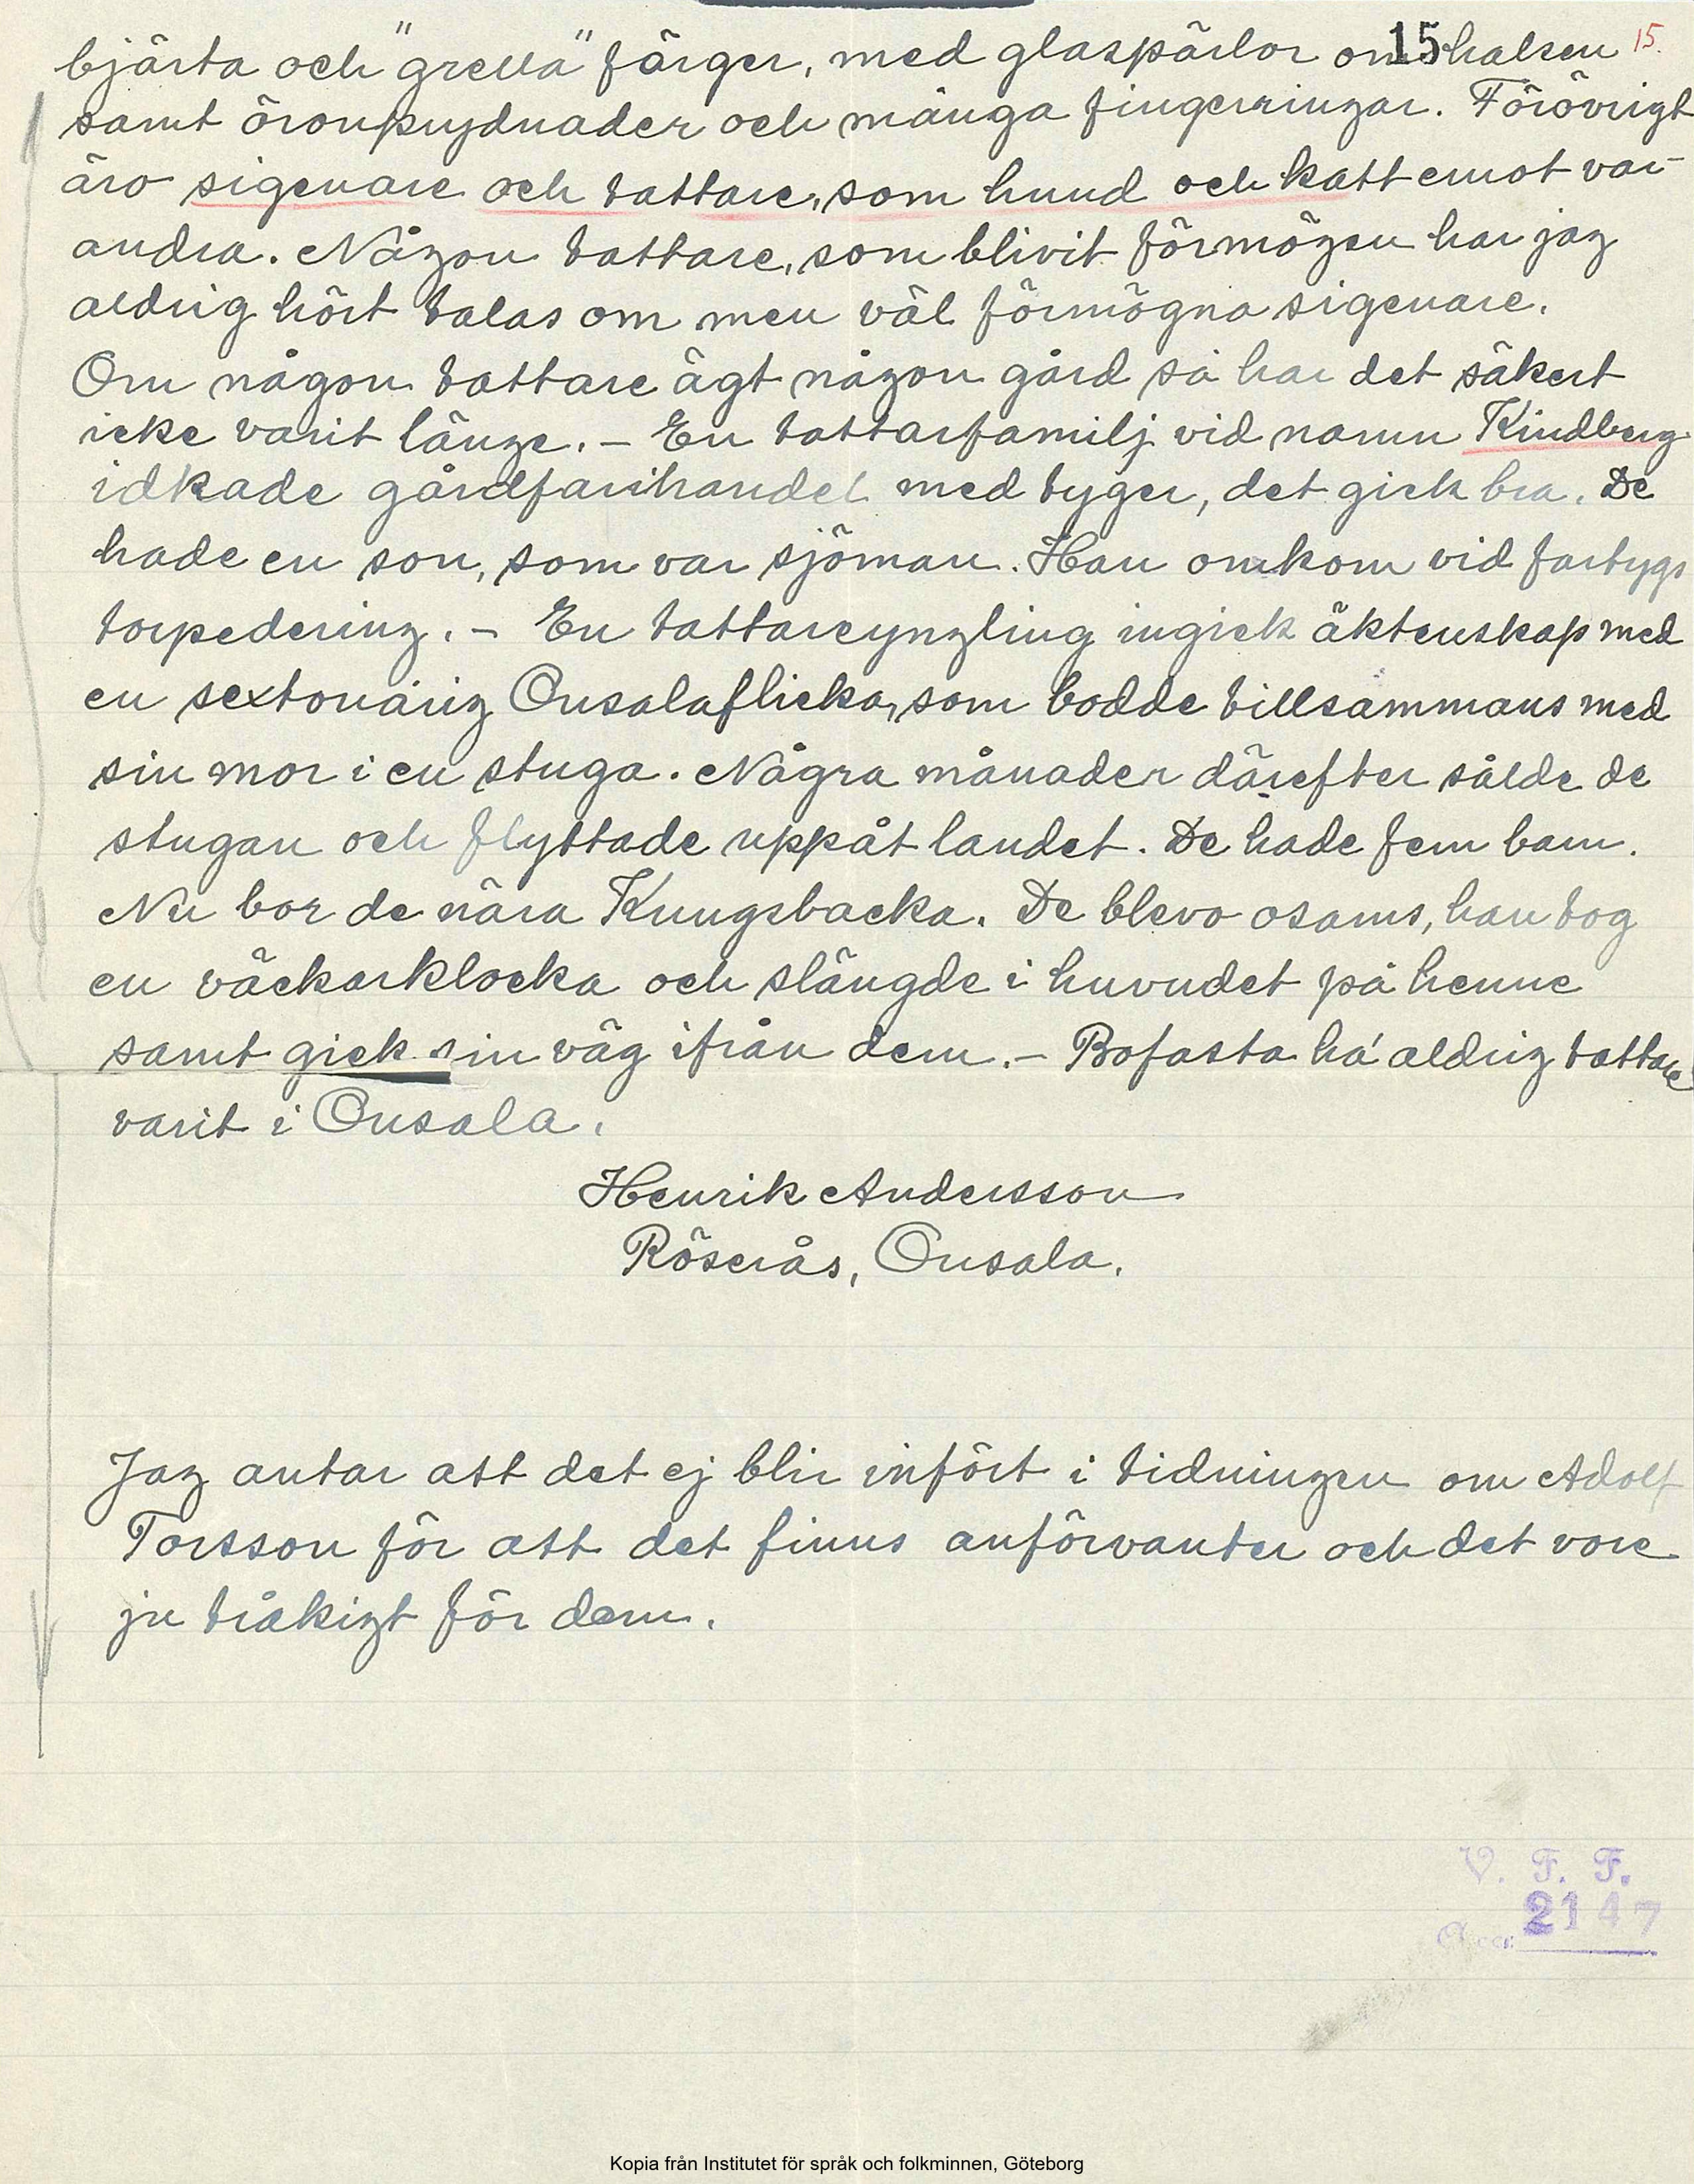 bjärta och "grella" färger, med glaspärlor om halsen 15 15.
samt öronprydnader och många fingerringar. Förövrigt
äro sigenare och tattare, som hund och katt emot var-
andra. Någon tattare, som blivit förmögen har jag
aldrig hört talas om men väl förmögna sigenare.
Om någon tattare ägt någon gård så har det säkert
icke varit länge. – En tattarfamilj vid namn Kindberg
idkade gårdfarihandel med tyger, det gick bra. De
hade en son, som var sjöman. Han omkom vid fartygs
torpedering. – En tattareyngling ingick äktenskap med
en sextonårig Onsalaflicka, som bodde tillsammans med
sin mor i en stuga. Några månader därefter sålde de
stugan och flyttade uppåt landet. De hade fem barn.
Nu bor de nära Kungsbacka. De blevo osams, han tog
en väckarklocka och slängde i huvudet på henne
samt gick sin väg ifrån dem. – Bofasta ha aldrig tattare
varit i Onsala.
Henrik Andersson
Röserås, Onsala.
Jag antar att det ej blir infört i tidningen om Adolf
Torsson för att det finns anförvanter och det vore
ju tråkigt för dem.
V. F. F.
Acc. 2147
Kopia från Institutet för språk och folkminnen, Göteborg